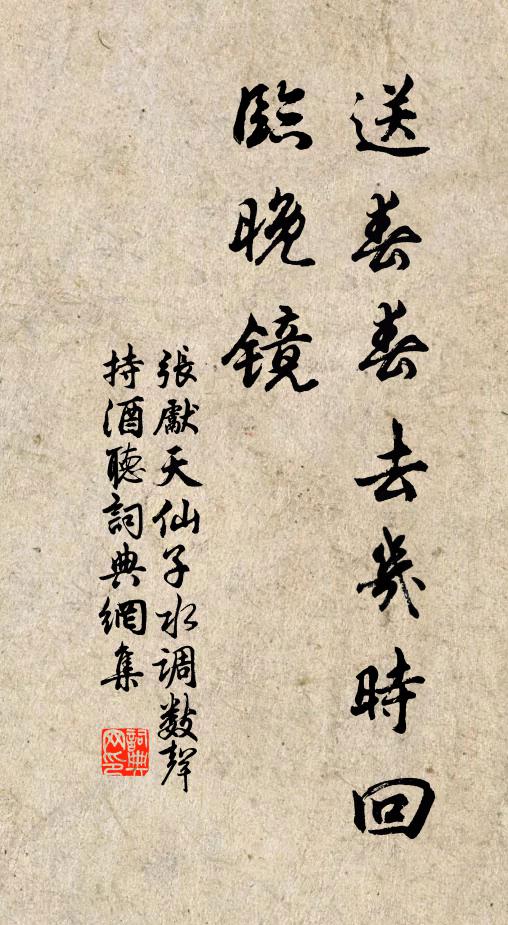 送春春去幾時回
臨晚镜
張獻天仙子水调數聲
持酒聽詞典網集
詞典
网印